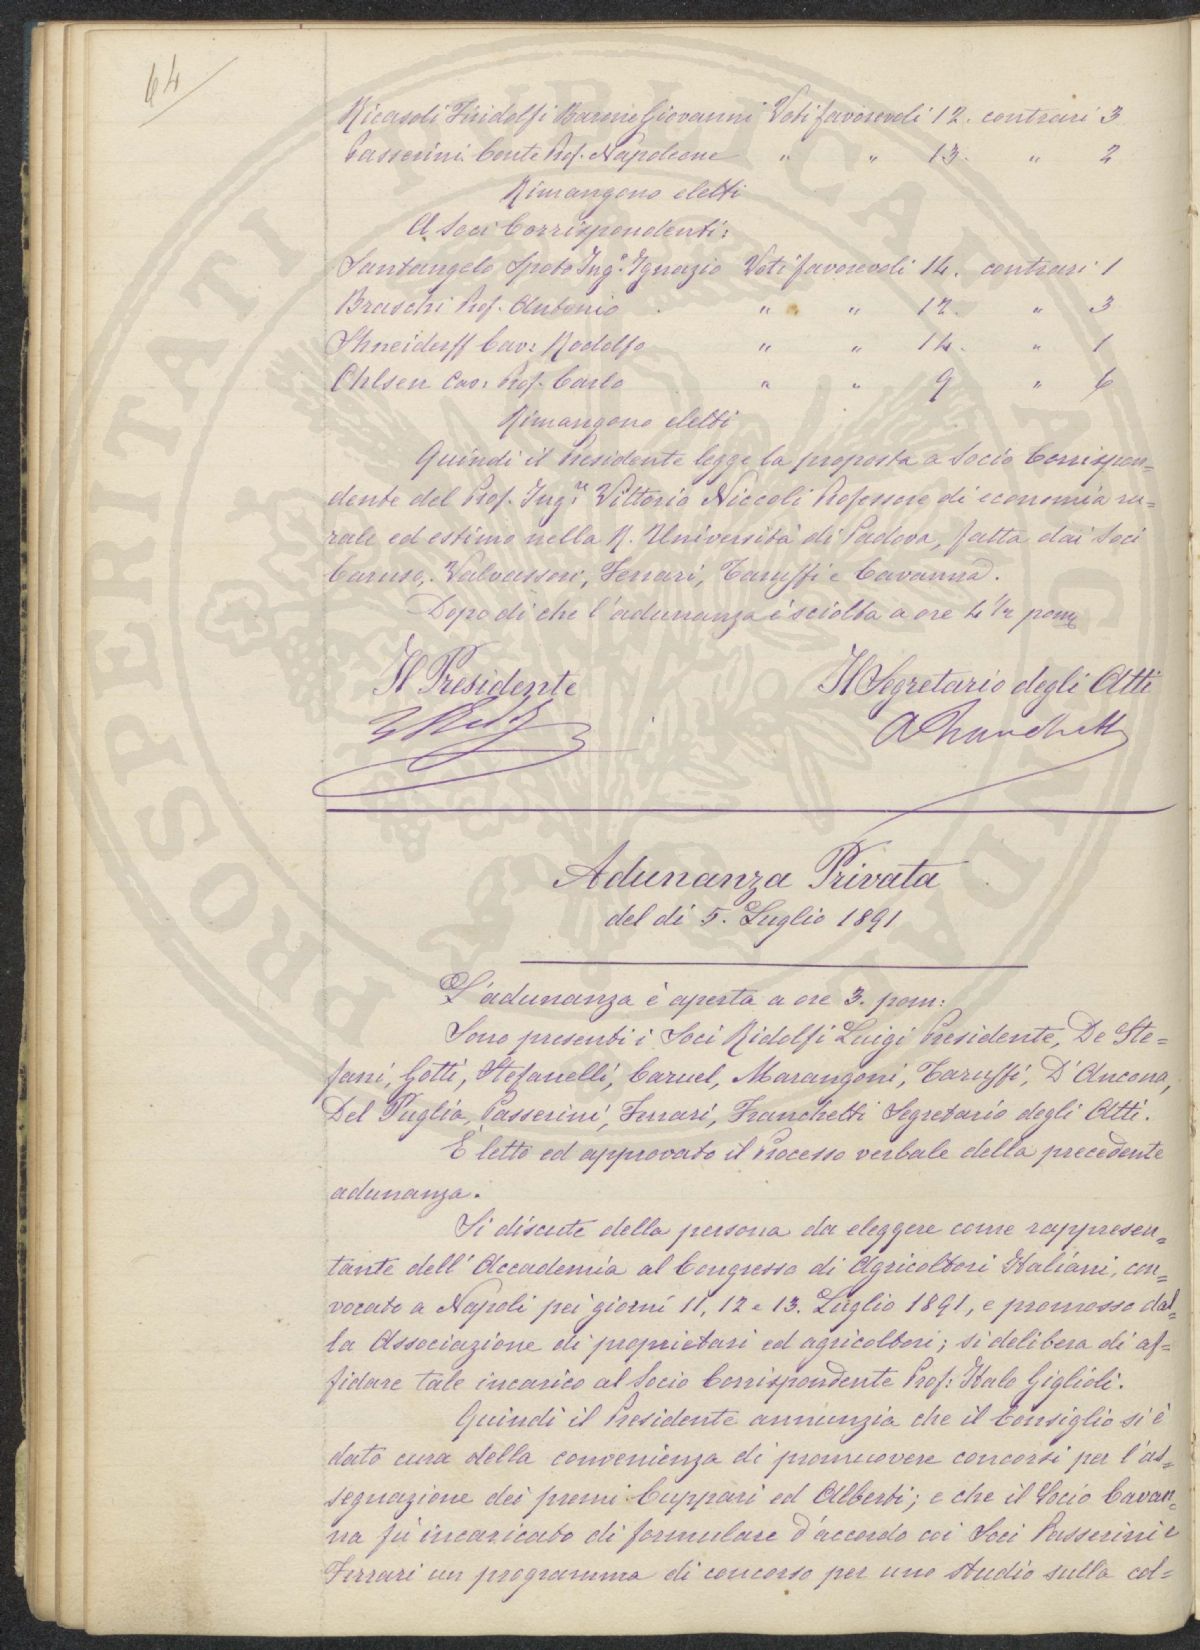 64
Ricasoli Firidolfi Barone Giovanni Voti favorevoli 12. contrari 3
Passerini Conte Prof. Napoleone " " 13. " 2
Rimangono eletti
A Soci Corrispondenti:
Santangelo Spoto Ing.e Ignazio Voti favorevoli 14. contrari 1
Braschi Prof. Antonio " " 12. " 3
Shneiderff Cav: Rodolfo " " 14. " 1
Ohlsen Cav: Prof. Carlo " " 9 " 6
Rimangono eletti
Quindi il Presidente legge la proposta a Socio Corrispon=
dente del Prof. Ing.re Vittorio Niccoli Professore di economia ru=
rale ed estimo nella R. Università di Padova, fatta dai Soci
Caruso, Valvassori, Ferrari, Taruffi e Cavanna.
Dopo di che l'adunanza è sciolta a ore 4 1/2 pom
Il Presidente Il Segretario degli Atti
L Ridolfi A Franchetti
Adunanza Privata
del dì 5. Luglio 1891
L'adunanza è aperta a ore 3. pom:
Sono presenti i Soci Ridolfi Luigi Presidente, De Ste=
fani, Gotti, Stefanelli, Caruel, Marangoni, Taruffi, D'Ancona,
Del Puglia, Passerini, Ferrari, Franchetti Segretario degli Atti.
È letto ed approvato il Processo verbale della precedente
adunanza.
Si discute della persona da eleggere come rappresen=
tante dell'Accademia al Congresso di Agricoltori Italiani, con=
vocato a Napoli pei giorni 11, 12 e 13. Luglio 1891, e promosso dal=
la Associazione di proprietari ed agricoltori; si delibera di af=
fidare tale incarico al Socio Corrispondente Prof: Italo Giglioli.
Quindi il Presidente annunzia che il Consiglio si è
dato cura della convenienza di promuovere concorsi per l'as=
segnazione dei premi Cuppari ed Alberti; e che il Socio Cavan=
na fù incaricato di formulare d'accordo coi Soci Passerini e
Ferrari un programma di concorso per uno studio sulla col=
PROSPERITATI PUBLICAE AUGENDAE